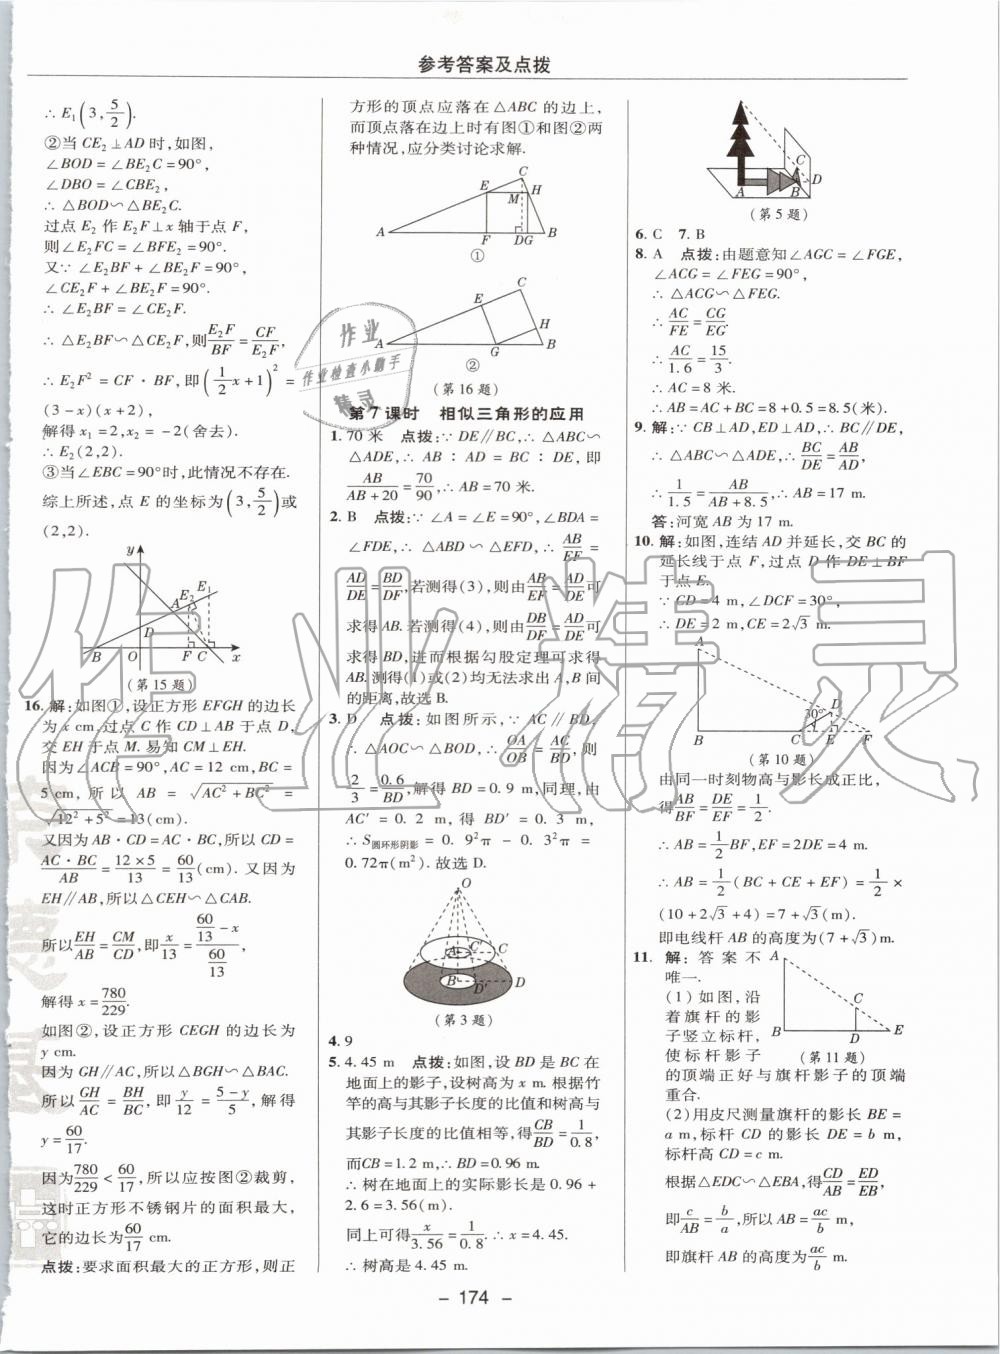 参考答案及点拨
∴ E₁(3, 5/2).
②当 CE₂⊥AD 时,如图,
∠BOD=∠BE₂C=90°,
∠DBO=∠CBE₂,
∴ △BOD∽△BE₂C.
过点 E₂ 作 E₂F⊥x 轴于点 F,
则∠E₂FC=∠BFE₂=90°.
又∵ ∠E₂BF+∠BE₂F=90°,
∠CE₂F+∠BE₂F=90°,
∴ ∠E₂BF=∠CE₂F.
∴ △E₂BF∽△CE₂F,则E₂F/BF=CF/E₂F,
∴ E₂F²=CF·BF,即(1/2x+1)²=
(3-x)(x+2),
解得 x₁=2,x₂=-2(舍去).
∴ E₂(2,2).
③当∠EBC=90°时,此情况不存在.
综上所述,点 E 的坐标为(3, 5/2)或
(2,2).
y
E₁
A E₂
D
B O F C x
(第15题)
16. 解:如图①,设正方形 EFGH 的边长
为 x cm.过点 C 作 CD⊥AB 于点 D,
交 EH 于点 M.易知 CM⊥EH.
因为∠ACB=90°,AC=12 cm,BC=
5 cm,所以 AB=√(AC²+BC²)=
√(12²+5²)=13(cm).
又因为 AB·CD=AC·BC,所以 CD=
AC·BC/AB=12×5/13=60/13(cm).又因为
EH∥AB,所以△CEH∽△CAB.
所以EH/AB=CM/CD,即x/13=(60/13-x)/(60/13).
解得 x=780/229.
如图②,设正方形 CEGH 的边长为
y cm.
因为 GH∥AC,所以△BGH∽△BAC.
所以GH/AC=BH/BC,即y/12=(5-y)/5,解得
y=60/17.
因为780/229<60/17,所以应按图②裁剪,
这时正方形不锈钢片的面积最大,
它的边长为60/17 cm.
点拨:要求面积最大的正方形,则正
方形的顶点应落在△ABC 的边上,
而顶点落在边上时有图①和图②两
种情况,应分类讨论求解.
C
E M H
A F DG B
①
C
E
H
A G B
②
(第16题)
第 7 课时 相似三角形的应用
1. 70米 点拨:∵ DE∥BC,∴ △ABC∽
△ADE,∴ AB∶AD=BC∶DE,即
AB/(AB+20)=70/90,∴ AB=70 米.
2. B 点拨:∵ ∠A=∠E=90°,∠BDA=
∠FDE,∴ △ABD∽△EFD,∴ AB/EF=
AD/DE=BD/DF,若测得(3),则由AB/EF=AD/DE可
求得 AB.若测得(4),则由DB/DF=AD/DE可
求得 BD,进而根据勾股定理可求得
AB.测得(1)或(2)均无法求出 A,B 间
的距离,故选 B.
3. D 点拨:如图所示,∵ AC∥BD,
∴ △AOC∽△BOD,∴ OA/OB=AC/BD,则
2/3=0.6/BD,解得 BD=0.9 m.同理,由
AC′=0.2 m,得 BD′=0.3 m,
∴ S圆环形阴影=0.9²π-0.3²π=
0.72π(m²).故选 D.
O
A C′ C
B D′ D
(第3题)
4. 9
5. 4.45 m 点拨:如图,设 BD 是 BC 在
地面上的影子,设树高为 x m.根据竹
竿的高与其影子长度的比值和树高与
其影子长度的比值相等,得CB/BD=1/0.8,
而CB=1.2 m,∴ BD=0.96 m.
∴ 树在地面上的实际影长是 0.96+
2.6=3.56(m).
同上可得x/3.56=1/0.8.∴ x=4.45.
∴ 树高是 4.45 m.
C
A B D
(第5题)
6. C 7. B
8. A 点拨:由题意知∠AGC=∠FGE,
∠ACG=∠FEG=90°,
∴ △ACG∽△FEG.
∴ AC/FE=CG/EG.
∴ AC/1.6=15/3.
∴ AC=8 米.
∴ AB=AC+BC=8+0.5=8.5(米).
9. 解:∵ CB⊥AD,ED⊥AD,∴ BC∥DE,
∴ △ABC∽△ADE,∴ BC/DE=AB/AD,
∴ 1/1.5=AB/(AB+8.5),∴ AB=17 m.
答:河宽 AB 为 17 m.
10. 解:如图,连结 AD 并延长,交 BC 的
延长线于点 F,过点 D 作 DE⊥BF
于点 E.
∵ CD=4 m,∠DCF=30°,
∴ DE=2 m,CE=2√3 m.
A
D
30°
B C E F
(第10题)
由同一时刻物高与影长成正比,
得AB/BF=DE/EF=1/2.
∴ AB=1/2BF,EF=2DE=4 m.
∴ AB=1/2(BC+CE+EF)=1/2×
(10+2√3+4)=7+√3(m).
即电线杆 AB 的高度为(7+√3)m.
11. 解:答案不
唯一.
(1)如图,沿
着旗杆的影
子竖立标杆,
使标杆影子
的顶端正好与旗杆影子的顶端
重合.
A
C
B D E
(第11题)
(2)用皮尺测量旗杆的影长 BE=
a m,标杆 CD 的影长 DE=b m,
标杆高 CD=c m.
根据△EDC∽△EBA,得CD/AB=ED/EB,
即c/AB=b/a,所以 AB=ac/b m,
即旗杆 AB 的高度为ac/b m.
作业
作业检查小助手
精灵
作业精灵
- 174 -